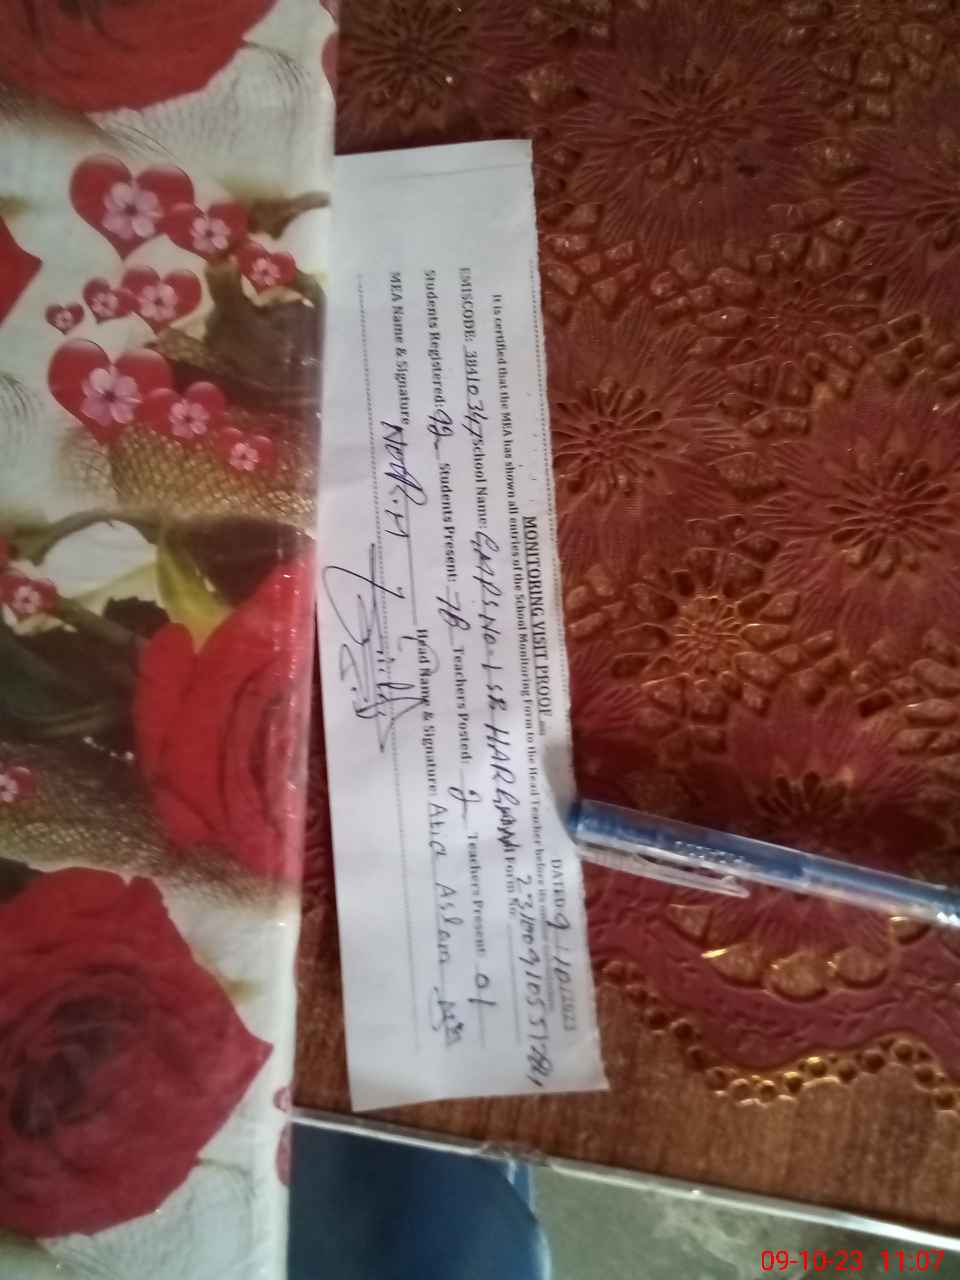 MONITORING VISIT PROOF
DATED 9/10/2023
It is certified that the MEA has shown all entries of the School Monitoring Form to the Head Teacher before its
EMISCODE: 38410347 School Name: GMPS NO-1 SB HAR Form No:
Students Registered: 92 Students Present: 78 Teachers Posted: 2 Teachers Present: 01
MEA Name & Signature Head Name & Signature: Atia Aslam
09-10-23 11:07